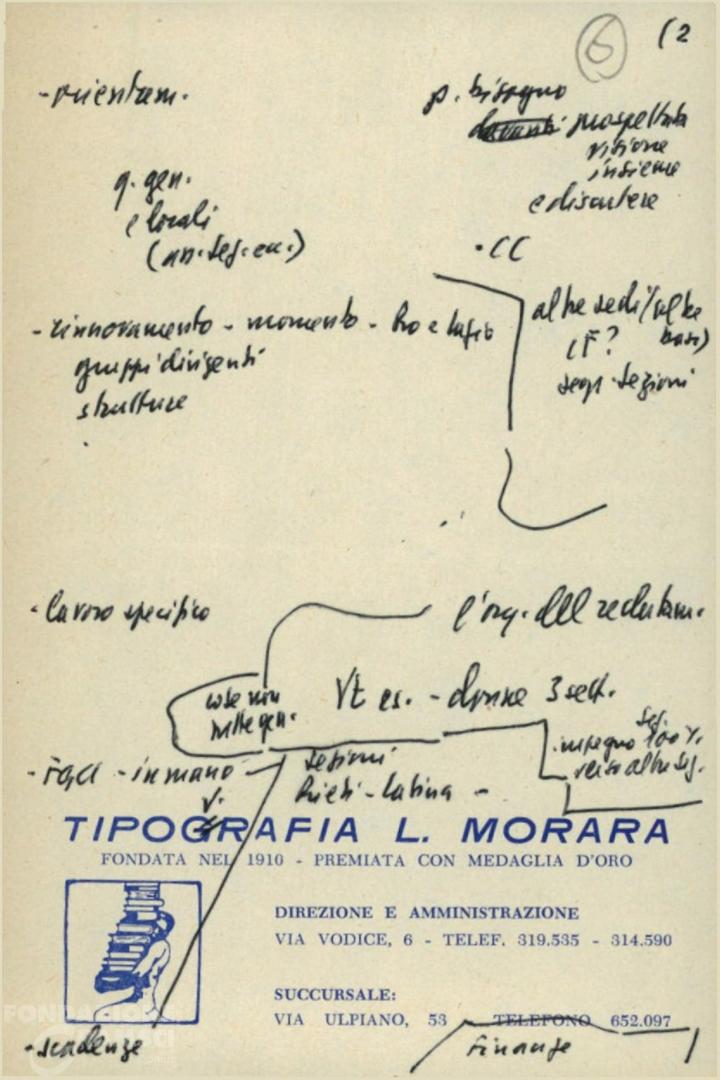 6
(2
- orientam.
p. bisogno
davanti prospettata
visione
insieme
e discutere
q. gen.
e locali
(an. seg. ecc.)
• CC
altre sedi / (altre
basi)
CF?
segr. sezioni
- rinnovamento - momento -
gruppi dirigenti
strutture
- lavoro specifico
l'org. del reclutam.
cose non
nelle gen.
Vt es. - donne 3 sett.
- FGCI - in mano
sezioni
Rieti - Latina -
Sez.
impegno 100%
verso altre sez.
TIPOGRAFIA L. MORARA
FONDATA NEL 1910 - PREMIATA CON MEDAGLIA D'ORO
DIREZIONE E AMMINISTRAZIONE
VIA VODICE, 6 - TELEF. 319.535 - 314.590
SUCCURSALE:
VIA ULPIANO, 53 TELEFONO 652.097
FONDAZIONE
- scadenze
Finanze